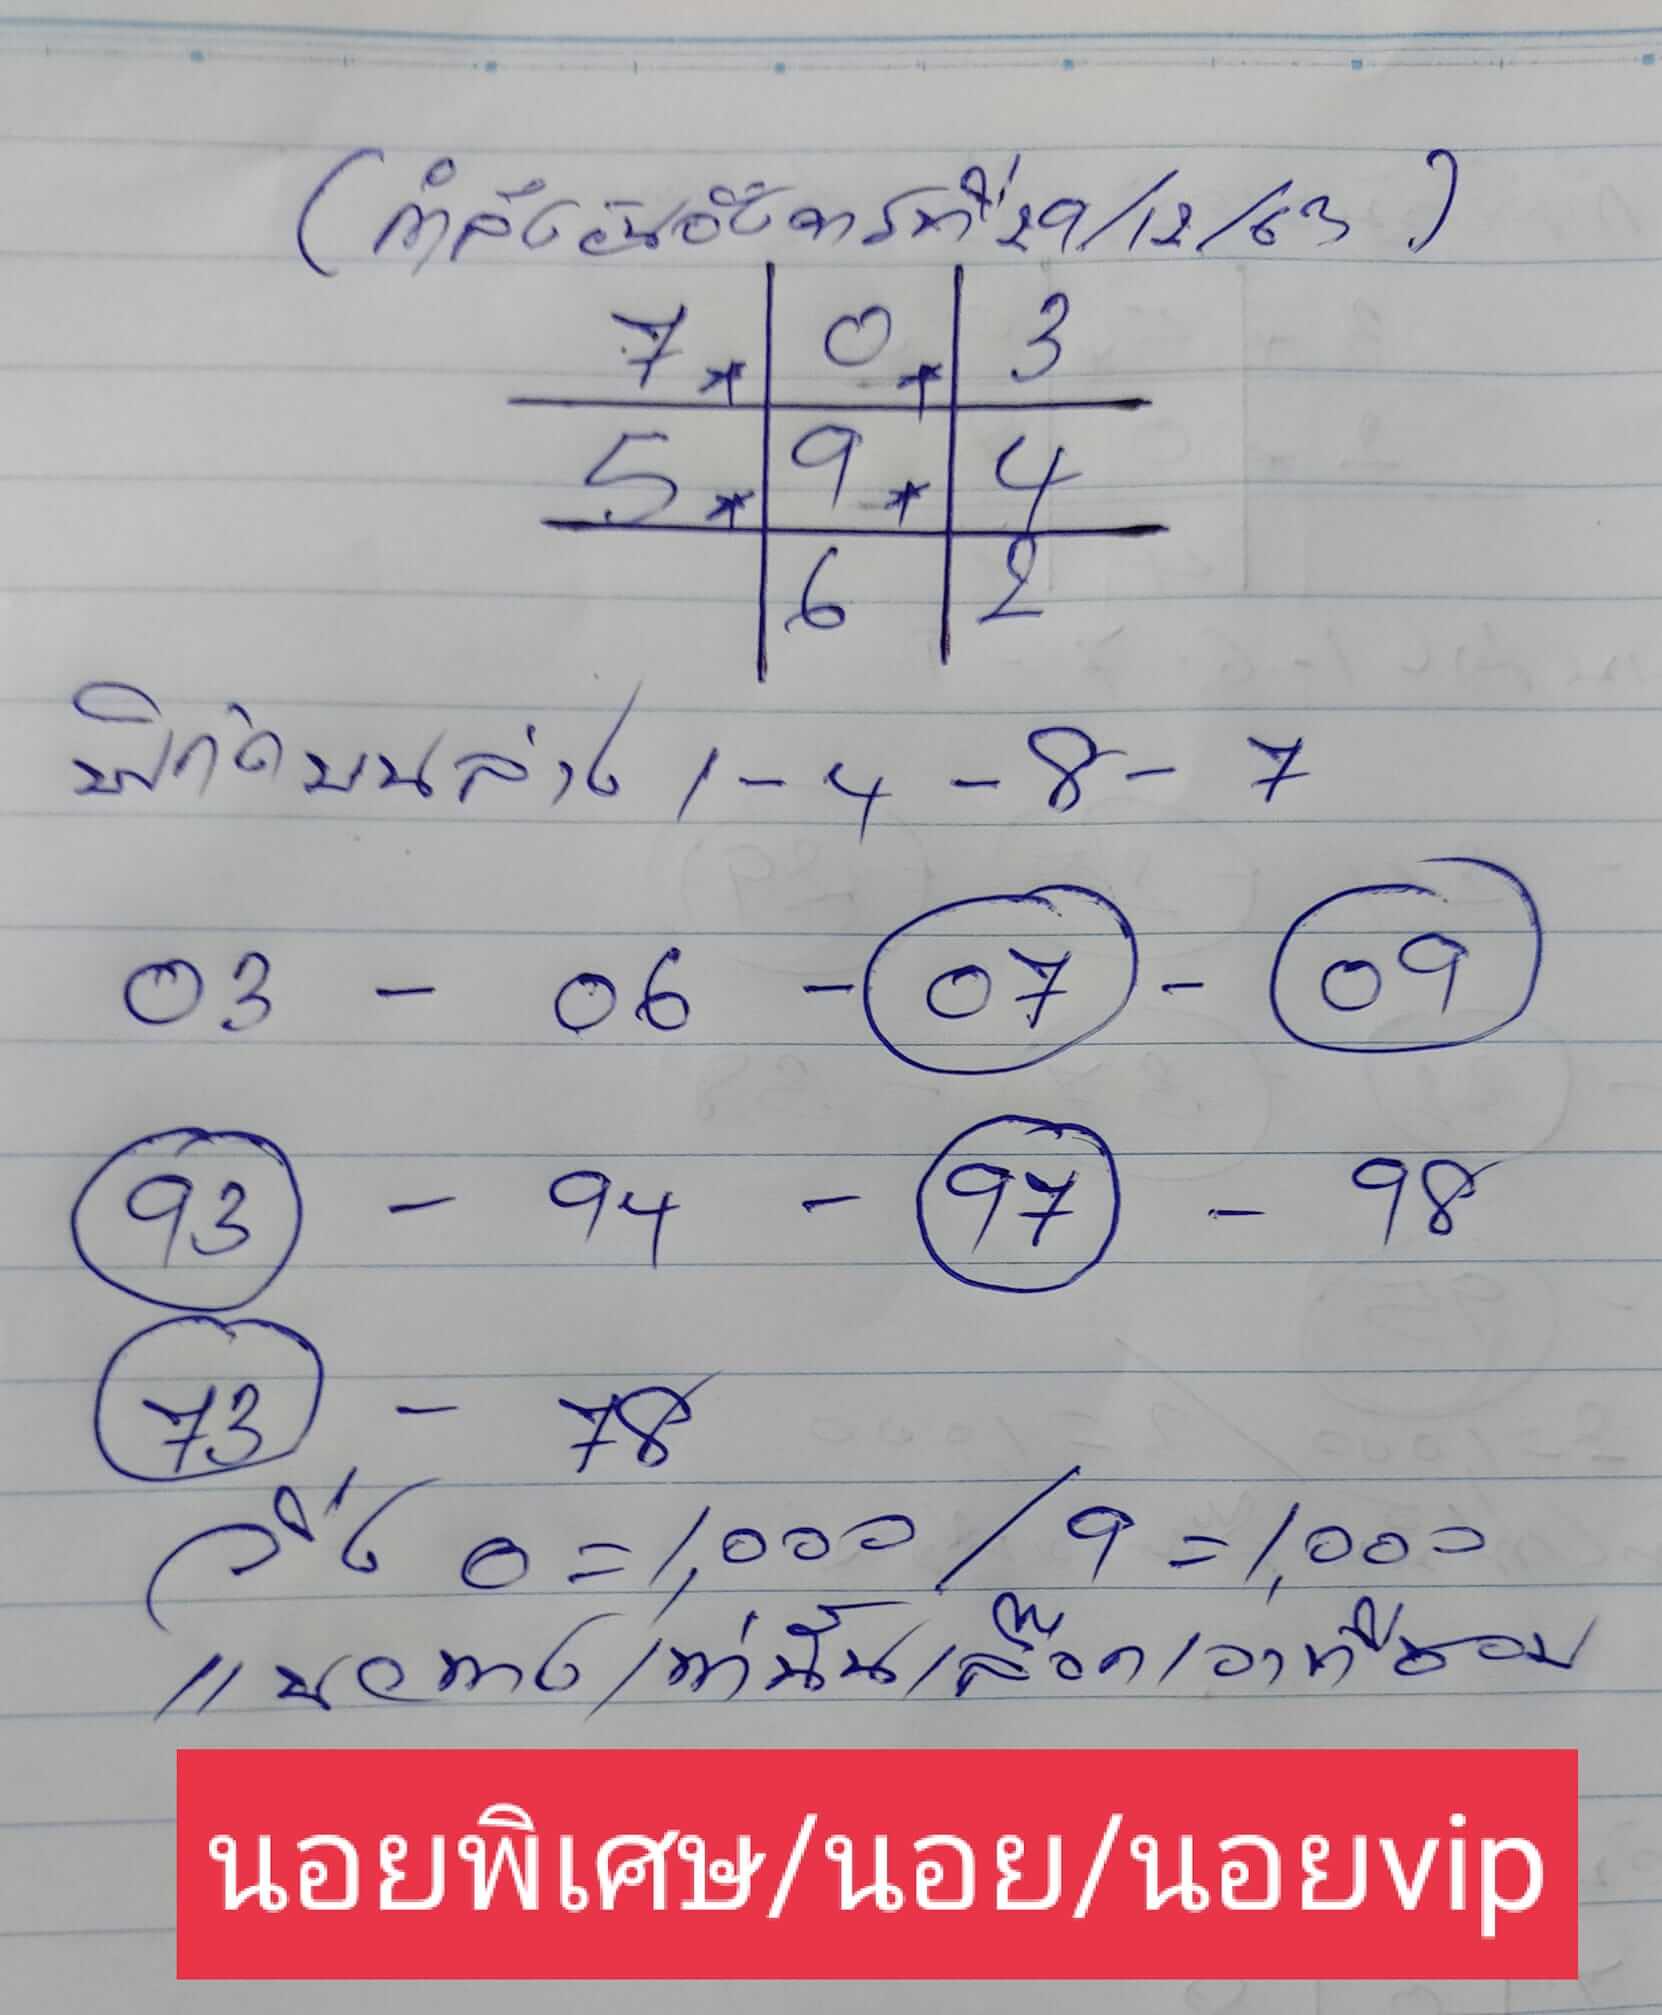 (กำลังวันอังคารที่ 29/12/63)
7* 0* 3
5* 9* 4
6 2
พิกัดบนล่าง 1-4-8-7
03 - 06 - 07 - 09
93 - 94 - 97 - 98
73 - 78
วิ่ง 0=1,000/9=1,000
แนวทางเท่านั้นเลือกเอาที่ชอบ
นอยพิเศษ/นอย/นอยvip